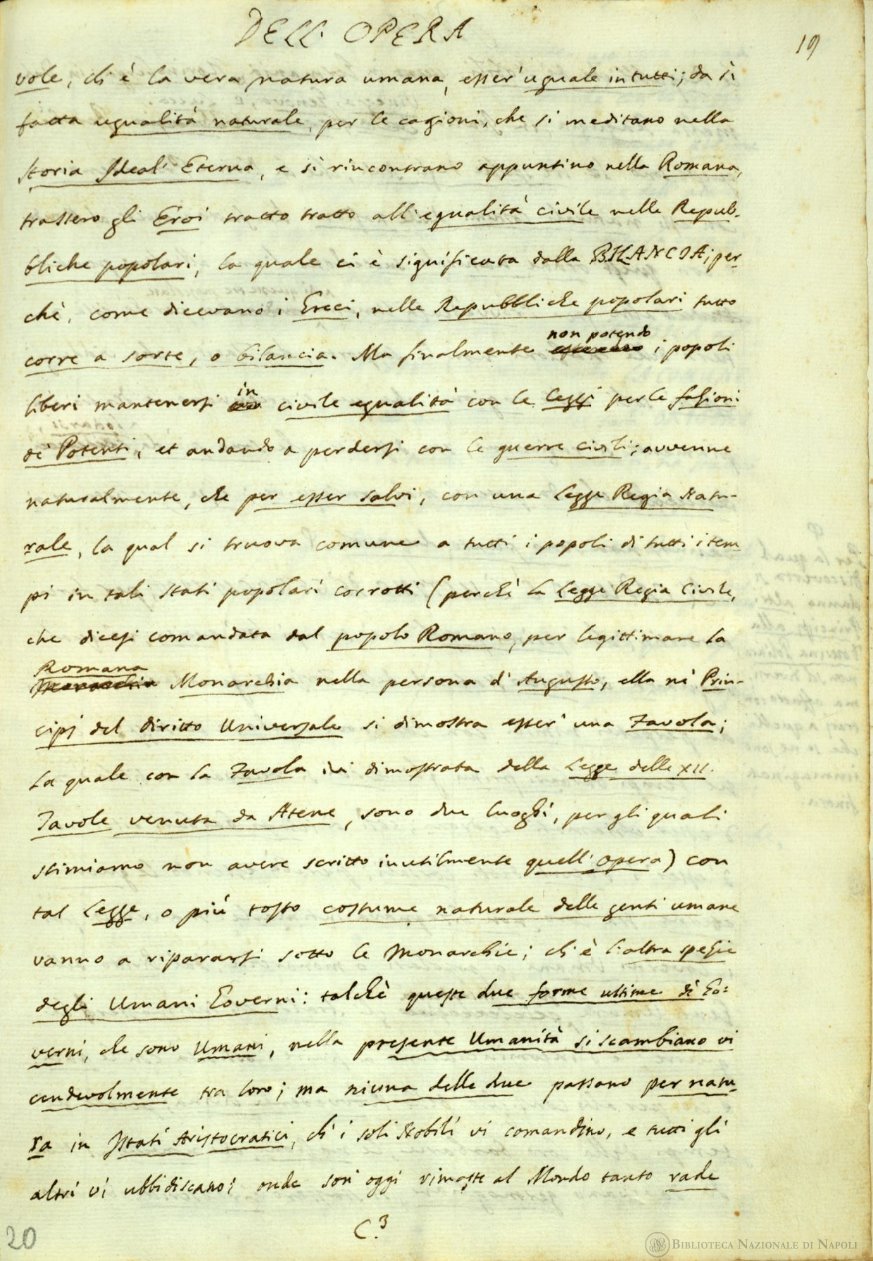 DELL' OPERA
19
vole, ch'è la vera natura umana, esser' uguale in tutti; da sì
fatta ugualità naturale, per le cagioni, che si meditano nella
Storia Ideal' Eterna, e si rincontrano appuntino nella Romana,
trassero gli Eroi tratto tratto all'egualità civile nelle Repub-
bliche popolari, la quale ci è significata dalla BILANCIA; per-
chè, come dicevano i Greci, nelle Repubbliche popolari tutto
corre a sorte, o bilancia. Ma finalmente non potendo i popoli
liberi mantenersi in civile egualità con le leggi per le fazioni
de' Potenti, et andando a perdersi con le guerre civili; avvenne
naturalmente, che per esser salvi, con una Legge Regia Natu-
rale, la qual si truova comune a tutti i popoli di tutti i tem
pi in tali Stati popolari corrotti (perchè la Legge Regia Civile,
che dicesi comandata dal popolo Romano, per legittimare la
Romana Monarchia nella persona d'Augusto, ella ne' Prin-
cipj del diritto Universale si dimostra esser' una Favola;
la quale con la Favola ivi dimostrata della Legge delle XII.
Tavole venuta da Atene, sono due luoghi, per gli quali
stimiamo non avere scritto inutilmente quell'opera) con
tal Legge, o più tosto costume naturale delle genti umane
vanno a ripararsi sotto le Monarchie; ch'è l'altra spezie
degli Umani Governi: talchè queste due forme ultime de' Go-
verni, che sono Umani, nella presente Umanità si scambiano vi
cendevolmente tra loro; ma niuna delle due passano per natu-
ra in Istati Aristocratici, ch'i soli Nobili vi comandino, e tutti gli
altri vi ubbidiscano; onde son' oggi rimaste al Mondo tanto rade
C.3
20
BIBLIOTECA NAZIONALE DI NAPOLI